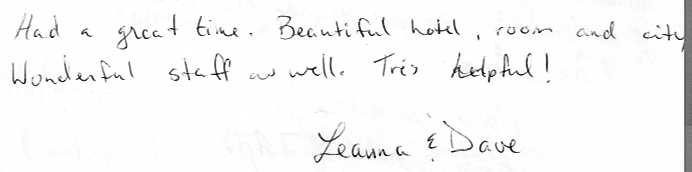 Had a great time. Beautiful hotel, room and city
Wonderful staff as well. Très helpful!
Leanna & Dave